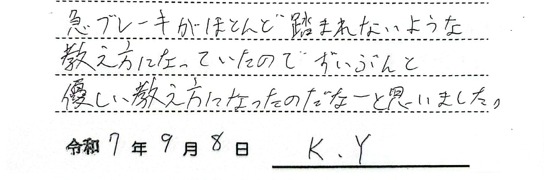 急ブレーキがほとんど踏まれないような
教え方になっていたのでずいぶんと
優しい教え方になったのだなーと思いました。
令和7年9月8日 K.Y